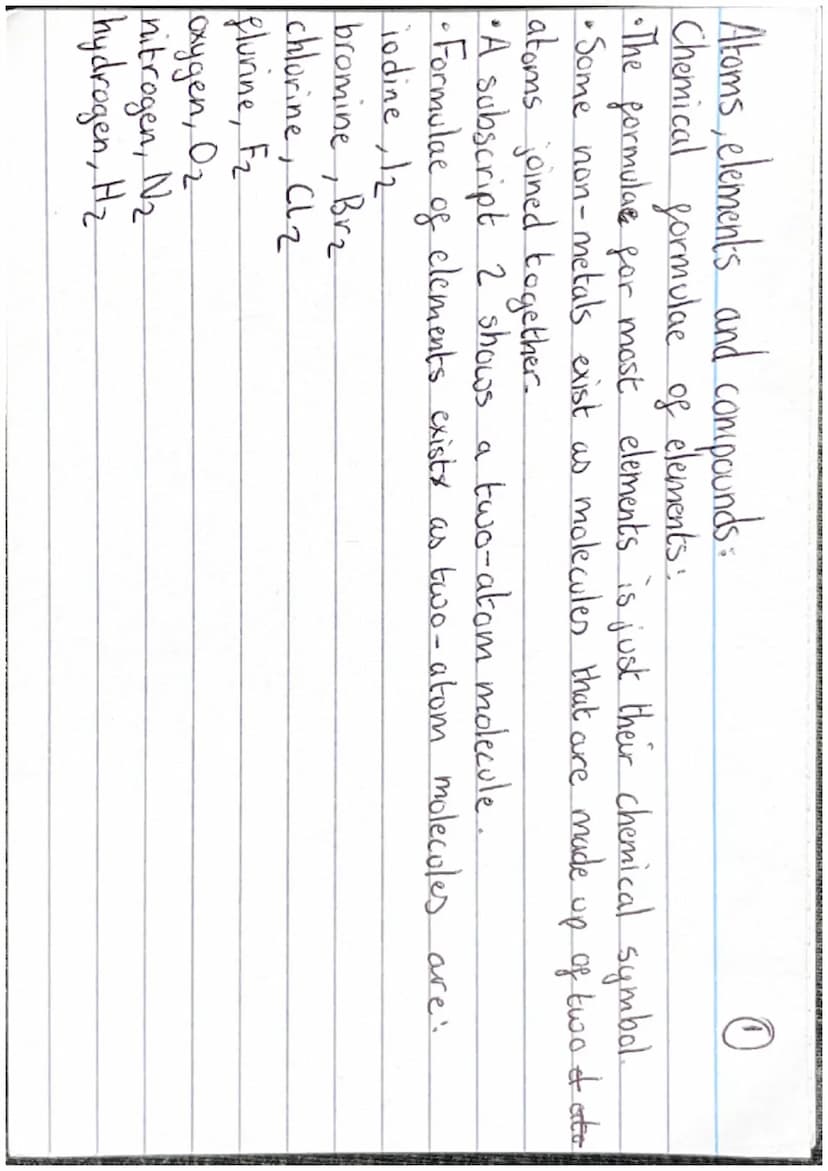 ①
Atoms, elements and compounds:
Chemical formulae of elements:
• The formulae for most elements is just their chemical symbol.
• Some non-metals exist as molecules that are made up of two
atoms joined together.
• A subscript 2 shows a two-atom molecule.
• Formulae of elements exists as two-atom molecules are:
iodine, I₂
bromine, Br₂
chlorine, Cl₂
flurine, F₂
oxygen, O₂
nitrogen, N₂
hydrogen, H₂